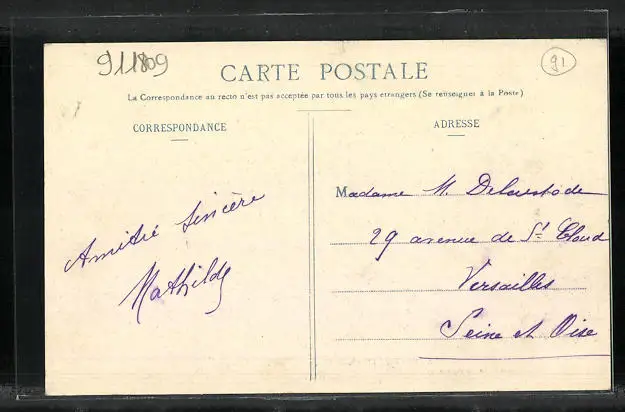 911809
91
CARTE POSTALE
La Correspondance au recto n'est pas acceptée par tous les pays etrangers (Se renseigner à la Poste)
CORRESPONDANCE
ADRESSE
Amitié sincère
Mathilde
Madame M.
29 avenue de St Cloud
Versailles
Seine et Oise